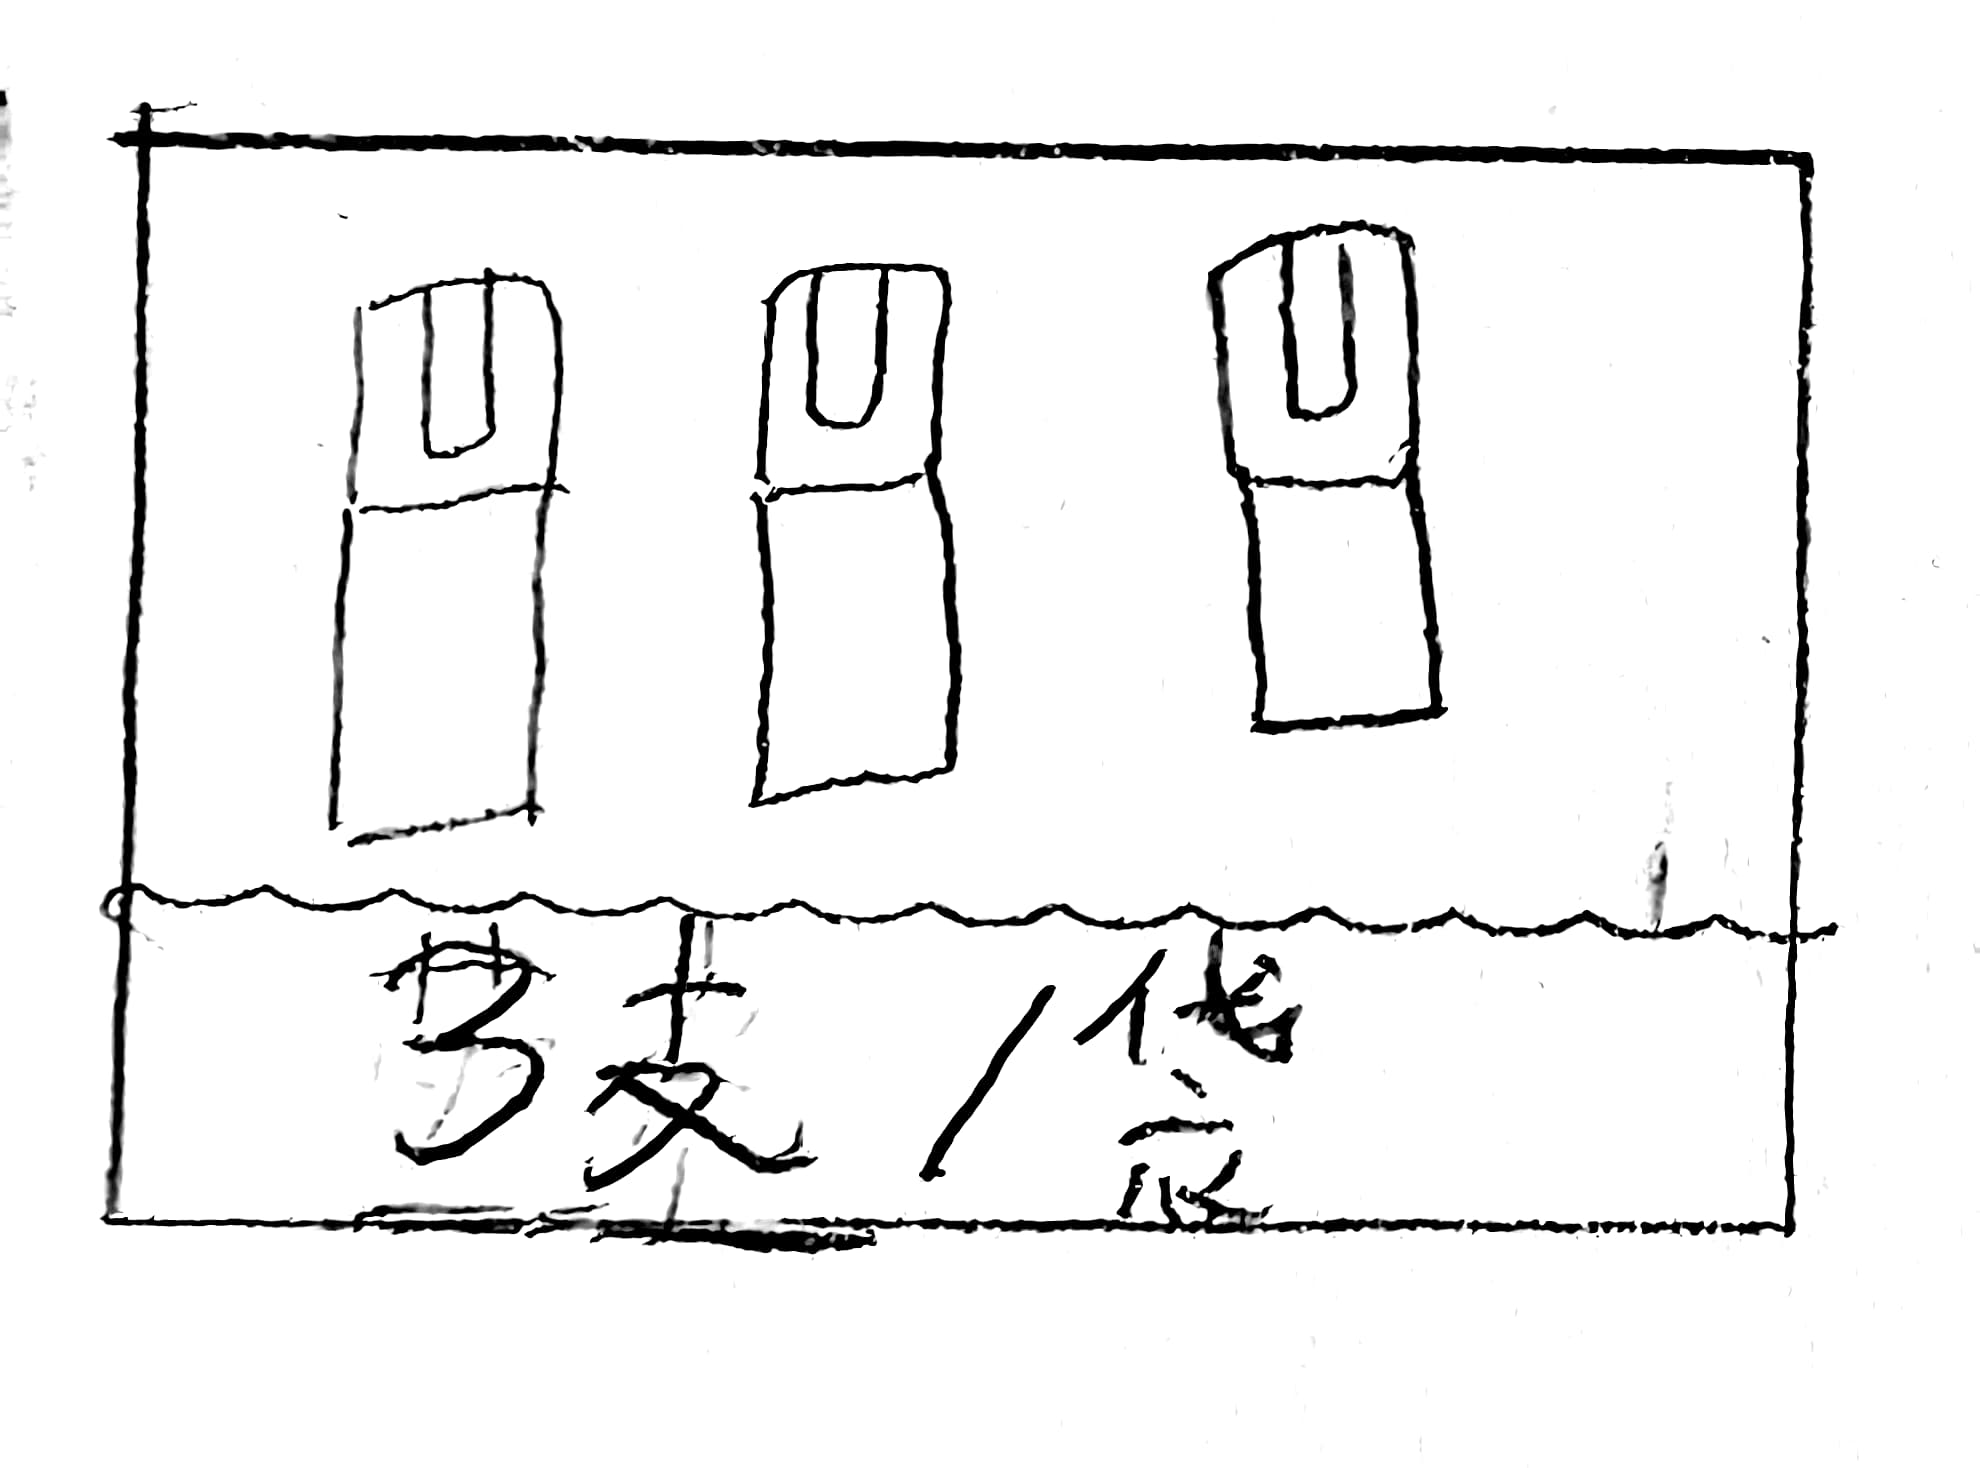 3支/袋